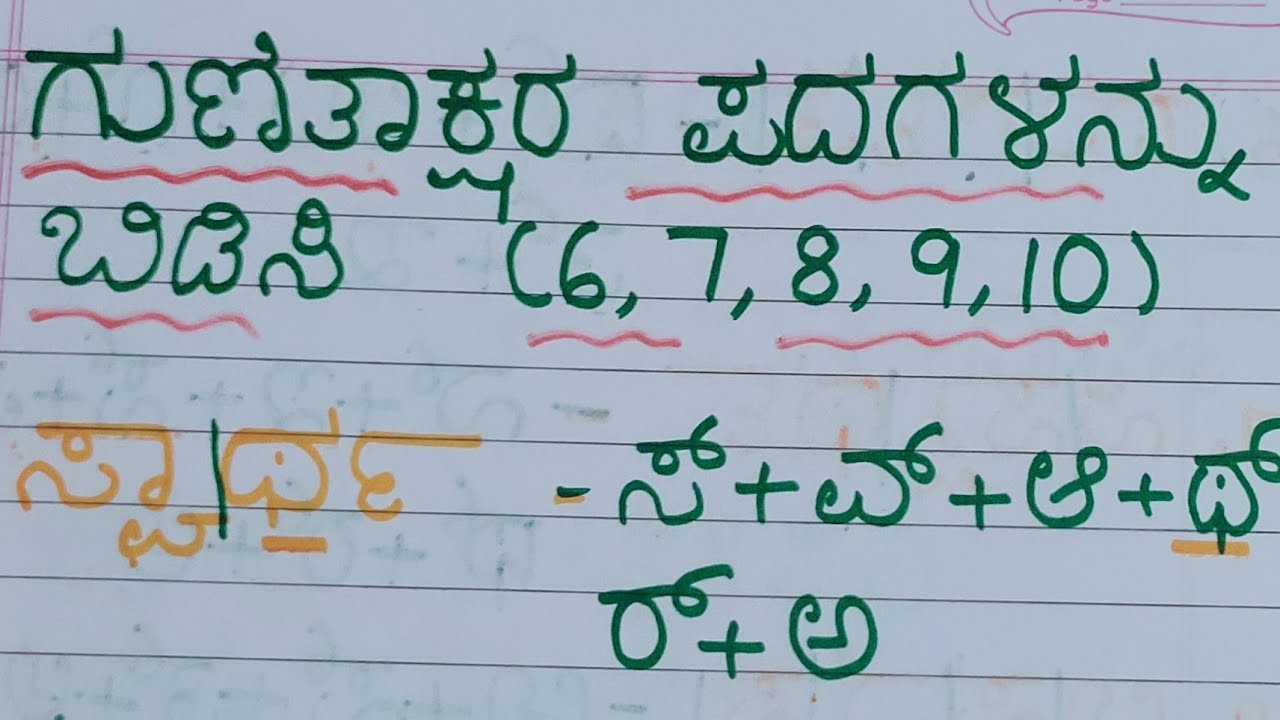 ಗುಣಿತಾಕ್ಷರ ಪದಗಳನ್ನು
ಬಿಡಿಸಿ (6, 7, 8, 9, 10)
ಸ್ವಾ|ರ್ಥ - ಸ್+ವ್+ಆ+ಥ್
ರ್+ಅ